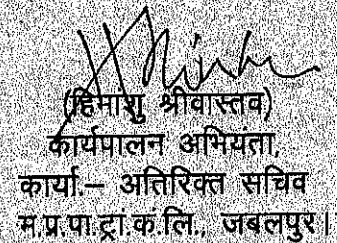 (हिमांशु श्रीवास्तव)
कार्यपालन अभियंता,
कार्या.– अतिरिक्त सचिव
म.प्र.पा.ट्रां.कं.लि., जबलपुर।